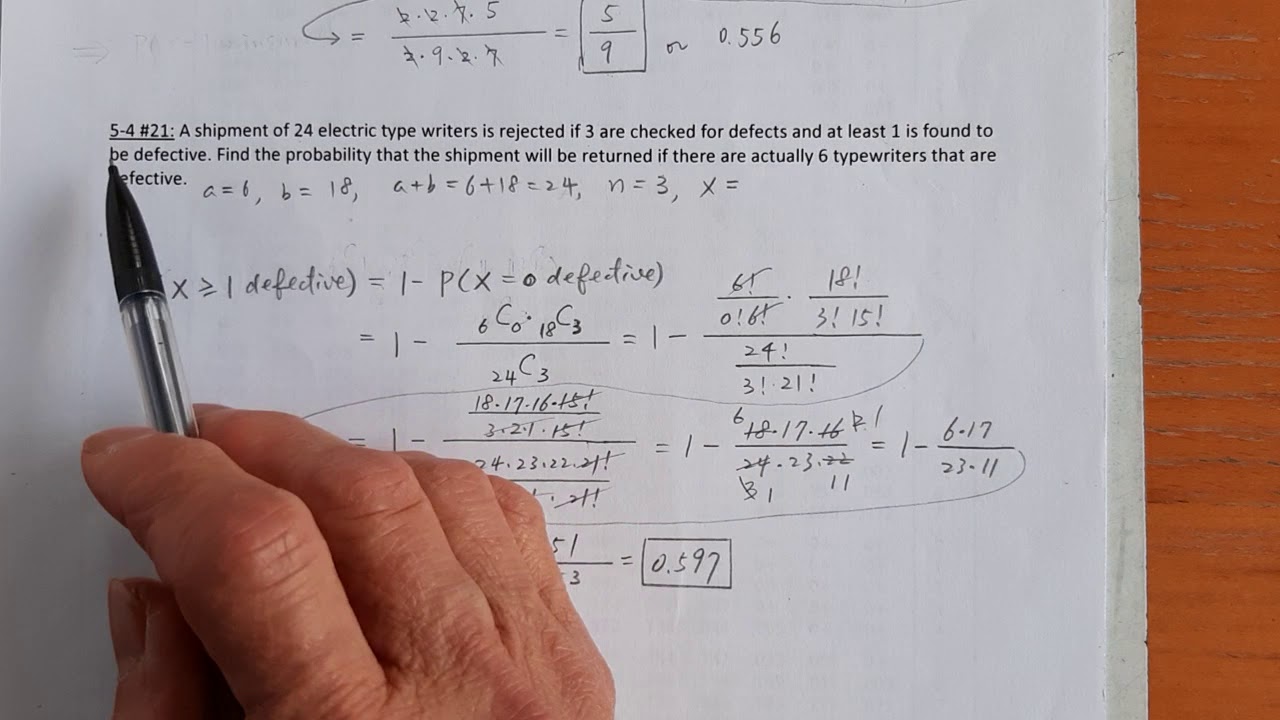 = 2·2·7·5 / 2·9·2·7 = 5/9 or 0.556
5-4 #21: A shipment of 24 electric type writers is rejected if 3 are checked for defects and at least 1 is found to
be defective. Find the probability that the shipment will be returned if there are actually 6 typewriters that are
efective. a = 6, b = 18, a+b = 6+18 = 24, n = 3, x =
X ≥ 1 defective) = 1 - P(X = 0 defective)
= 1 - 6C0 · 18C3 / 24C3 = 1 - 6!/0!6! · 18!/3! 15! / 24!/3!·21!
= 1 - 18·17·16·15!/3·2·1·15! / 24·23·22·21!/ ·21! = 1 - 18·17·16 / 24·23·22 = 1 - 6·17 / 23·11
51 / 3 = 0.597